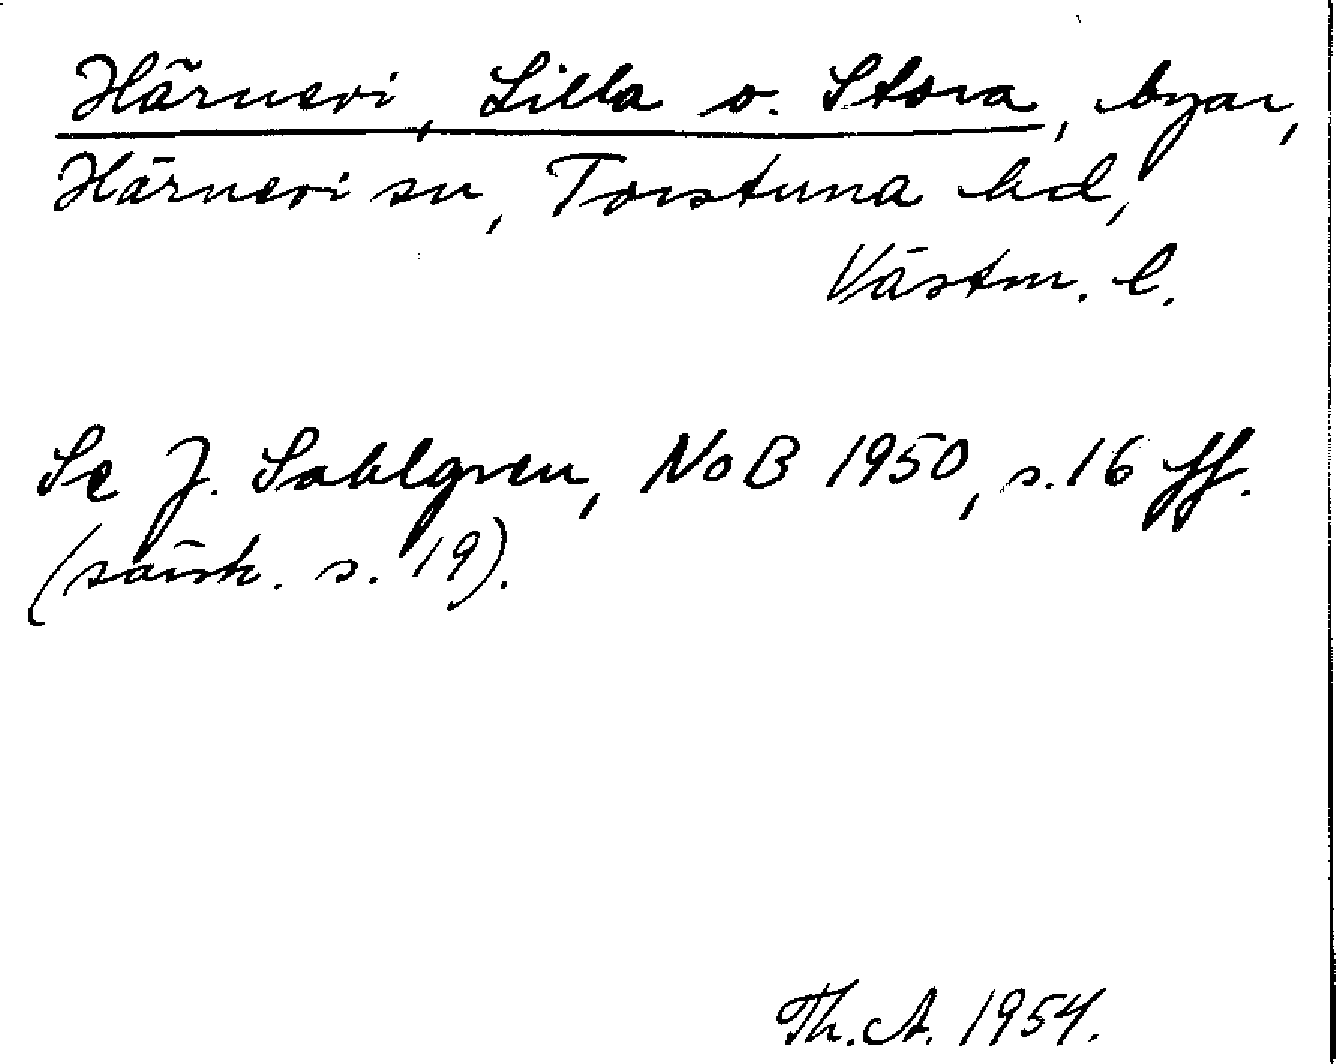 Härnevi, Lilla o. Stora, byar,
Härnevi sn, Torstuna hd,
Västm. l.
Se J. Sahlgren, NoB 1950, s. 16 ff.
(särsk. s. 19).
Th. A. 1954.